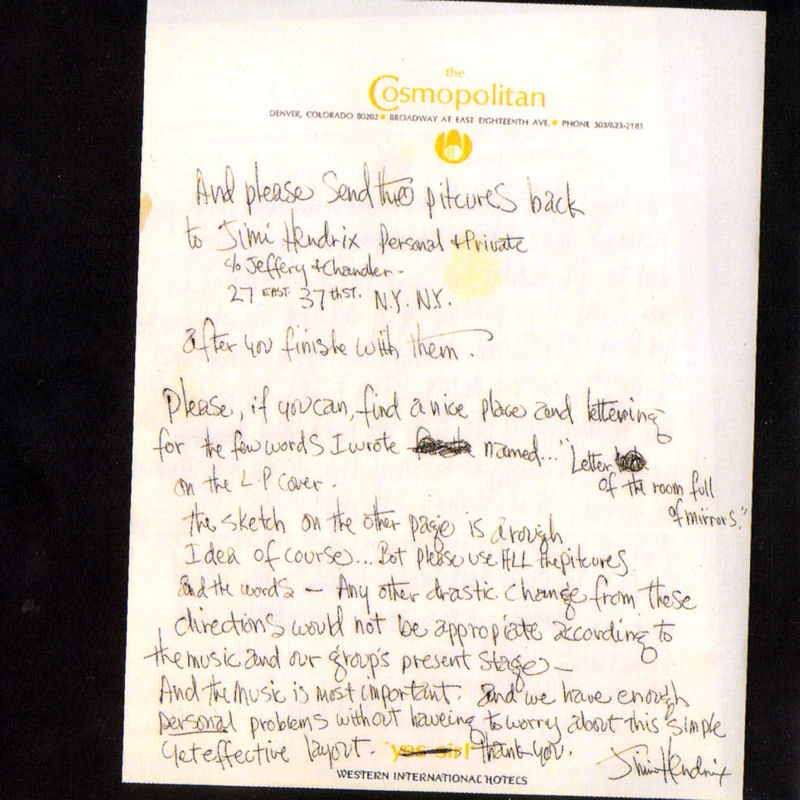 the
Cosmopolitan
DENVER, COLORADO 80202 ■ BROADWAY AT EAST EIGHTEENTH AVE. ■ PHONE 303/623-2181
And please Send theo pitcures back
to Jimi Hendrix Personal + Private
c/o Jeffery + Chandler -
27 EAST 37 thST. N.Y. N.Y.
after you finishe with them.
Please, if you can, find a nice place and lettering
for the few words I wrote named... "Letter
of the room full
of mirrors."
on the L.P cover.
the sketch on the other page is a rough
Idea of course... But please use ALL the pitcures
and the words — Any other drastic change from these
directions would not be appropiate according to
the music and our group's present stage —
And the music is most important. and we have enough
personal problems without haveing to worry about this simple
yet effective layout. yes sir! thank you.
Jimi Hendrix
WESTERN INTERNATIONAL HOTELS